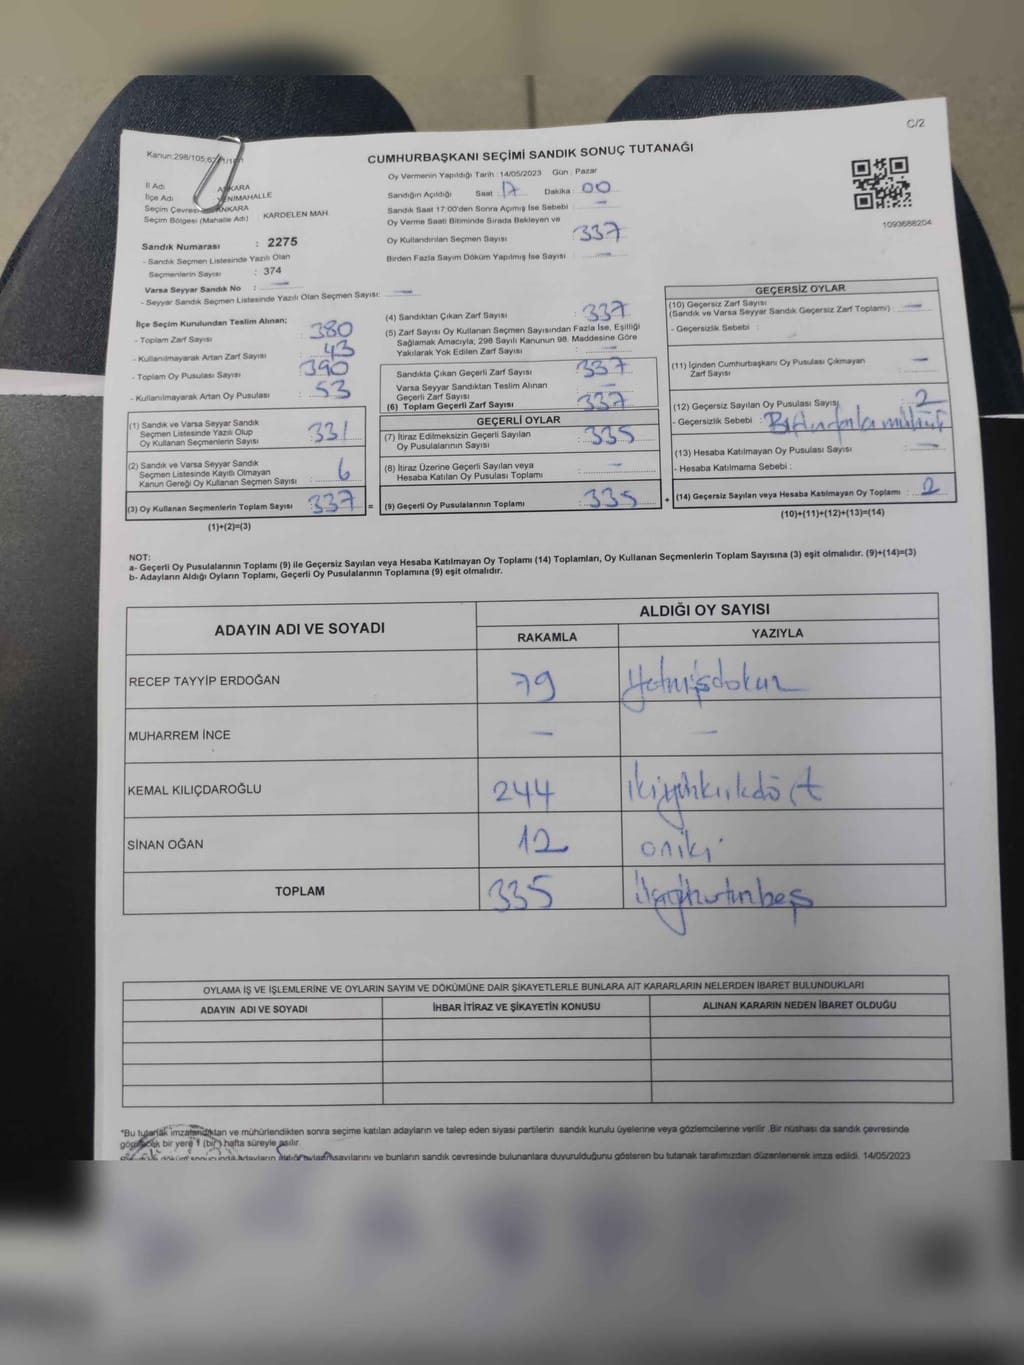 C/2
Kanun:298/105;
CUMHURBAŞKANI SEÇİMİ SANDIK SONUÇ TUTANAĞI
İl Adı : ANKARA
İlçe Adı YENİMAHALLE
Seçim Çevresi ANKARA
Seçim Bölgesi (Mahalle Adı) : KARDELEN MAH.
Sandık Numarası : 2275
- Sandık Seçmen Listesinde Yazılı Olan
Seçmenlerin Sayısı : 374
Varsa Seyyar Sandık No : —
- Seyyar Sandık Seçmen Listesinde Yazılı Olan Seçmen Sayısı: —
Oy Vermenin Yapıldığı Tarih : 14/05/2023 Gün : Pazar
Sandığın Açıldığı Saat : 17 Dakika : 00
Sandık Saat 17:00'den Sonra Açımış İse Sebebi : —
Oy Verme Saati Bitiminde Sırada Bekleyen ve
Oy Kullandırılan Seçmen Sayısı : 337
Birden Fazla Sayım Döküm Yapılmış İse Sayısı : —
1093688204
İlçe Seçim Kurulundan Teslim Alınan;
- Toplam Zarf Sayısı : 380
- Kullanılmayarak Artan Zarf Sayısı : 43
- Toplam Oy Pusulası Sayısı : 390
- Kullanılmayarak Artan Oy Pusulası : 53
(1) Sandık ve Varsa Seyyar Sandık
Seçmen Listesinde Yazılı Olup
Oy Kullanan Seçmenlerin Sayısı : 331
(2) Sandık ve Varsa Seyyar Sandık
Seçmen Listesinde Kayıtlı Olmayan
Kanun Gereği Oy Kullanan Seçmen Sayısı : 6
(3) Oy Kullanan Seçmenlerin Toplam Sayısı : 337 =
(1)+(2)=(3)
(4) Sandıktan Çıkan Zarf Sayısı : 337
(5) Zarf Sayısı Oy Kullanan Seçmen Sayısından Fazla İse, Eşitliği
Sağlamak Amacıyla; 298 Sayılı Kanunun 98. Maddesine Göre
Yakılarak Yok Edilen Zarf Sayısı : —
Sandıkta Çıkan Geçerli Zarf Sayısı : 337
Varsa Seyyar Sandıktan Teslim Alınan
Geçerli Zarf Sayısı : —
(6) Toplam Geçerli Zarf Sayısı : 337
GEÇERLİ OYLAR
(7) İtiraz Edilmeksizin Geçerli Sayılan
Oy Pusulalarının Sayısı : 335
(8) İtiraz Üzerine Geçerli Sayılan veya
Hesaba Katılan Oy Pusulası Toplamı : —
(9) Geçerli Oy Pusulalarının Toplamı : 335 +
GEÇERSİZ OYLAR
(10) Geçersiz Zarf Sayısı
(Sandık ve Varsa Seyyar Sandık Geçersiz Zarf Toplamı) : —
- Geçersizlik Sebebi :
(11) İçinden Cumhurbaşkanı Oy Pusulası Çıkmayan
Zarf Sayısı : —
(12) Geçersiz Sayılan Oy Pusulası Sayısı : 2
- Geçersizlik Sebebi :
(13) Hesaba Katılmayan Oy Pusulası Sayısı : —
- Hesaba Katılmama Sebebi :
(14) Geçersiz Sayılan veya Hesaba Katılmayan Oy Toplamı : 2
(10)+(11)+(12)+(13)=(14)
NOT:
a- Geçerli Oy Pusulalarının Toplamı (9) ile Geçersiz Sayılan veya Hesaba Katılmayan Oy Toplamı (14) Toplamları, Oy Kullanan Seçmenlerin Toplam Sayısına (3) eşit olmalıdır. (9)+(14)=(3)
b- Adayların Aldığı Oyların Toplamı, Geçerli Oy Pusulalarının Toplamına (9) eşit olmalıdır.
ADAYIN ADI VE SOYADI
ALDIĞI OY SAYISI
RAKAMLA YAZIYLA
RECEP TAYYİP ERDOĞAN 79 Yetmişdokuz
MUHARREM İNCE — —
KEMAL KILIÇDAROĞLU 244 ikiyüzkırkdört
SİNAN OĞAN 12 oniki
TOPLAM 335 üçyüzotuzbeş
OYLAMA İŞ VE İŞLEMLERİNE VE OYLARIN SAYIM VE DÖKÜMÜNE DAİR ŞİKAYETLERLE BUNLARA AİT KARARLARIN NELERDEN İBARET BULUNDUKLARI
ADAYIN ADI VE SOYADI İHBAR İTİRAZ VE ŞİKAYETİN KONUSU ALINAN KARARIN NEDEN İBARET OLDUĞU
*Bu tutanak imzalandıktan ve mühürlendikten sonra seçime katılan adayların ve talep eden siyasi partilerin sandık kurulu üyelerine veya gözlemcilerine verilir .Bir nüshası da sandık çevresinde
görülecek bir yere 1 (bir) hafta süreyle asılır.
döküm sonucunda adayların aldığı oyların sayılarını ve bunların sandık çevresinde bulunanlara duyurulduğunu gösteren bu tutanak tarafımızdan düzenlenerek imza edildi. 14/05/2023